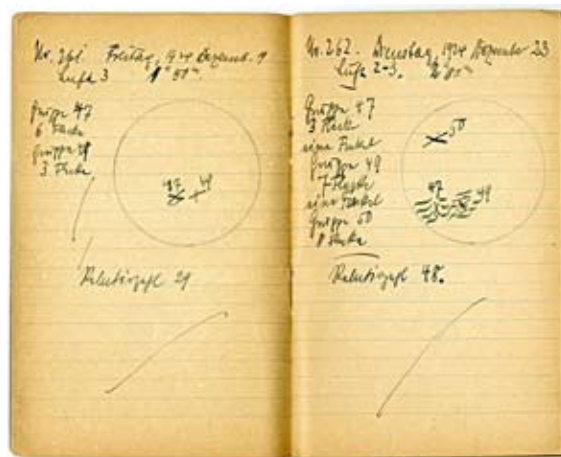 No. 261. Freitag, 1924 Dezemb.
Luft 3
Gruppe 47
6 Flecke
Gruppe 49
3 Flecke
47 49
Relativzahl 29
No. 262. Dienstag, 1924 Dezember 23
Luft 2-3.
Gruppe 47
3 Flecke
eine Fackel
Gruppe 49
7 Flecke
eine Fackel
Gruppe 50
8 Flecke
50
47 49
Relativzahl 48.